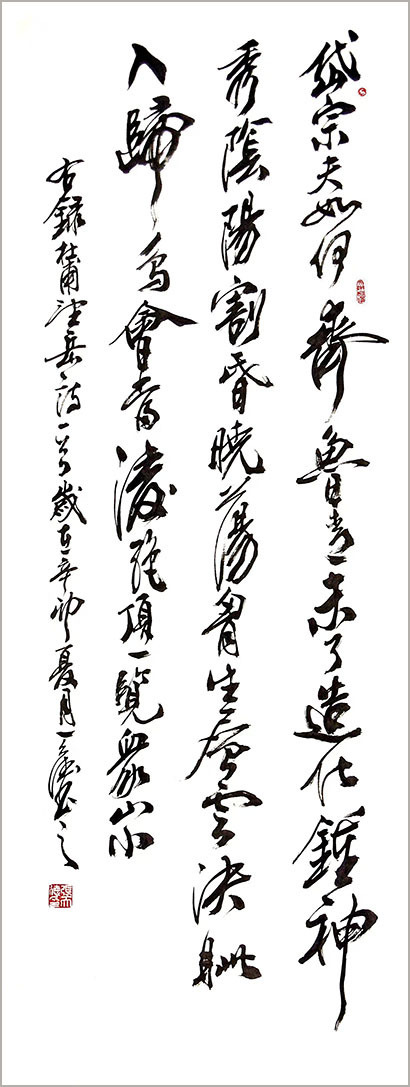 岱宗夫如何齊魯青未了造化鍾神
秀陰陽割昏曉蕩胷生層雲決眦
入歸鳥會當淩絕頂一覽眾山小
右錄杜甫望岳詩一首歲在辛卯夏月一書之